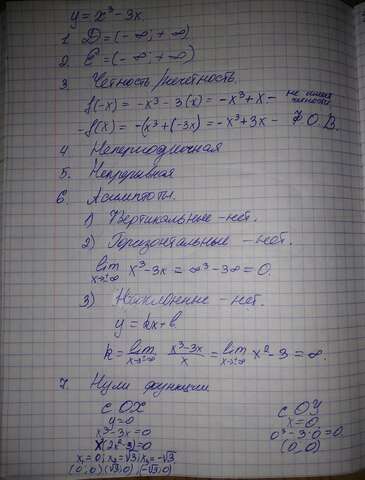 y = x³ - 3x.
1. D = (-∞; +∞)
2. E = (-∞; +∞)
3. Четность/нечетность.
f(-x) = -x³ - 3(x) = -x³ + x -
-f(x) = -(x³ + (-3x) = -x³ + 3x - Ф.О.В.
4 Непериодичная
5. Непрерывная
6. Асимптоты.
1) Вертикальные - нет.
2) Горизонтальные - нет.
lim x→±∞ x³ - 3x = ∞³ - 3∞ = 0.
3) Наклонные - нет.
y = kx + b.
k = lim x→±∞ (x³ - 3x)/x = lim x→±∞ x² - 3 = ∞.
7. Нули функции
с OX с OY
y = 0 x = 0
x³ - 3x = 0 0³ - 3·0 = 0.
x(2x² - 3) = 0 (0; 0)
x₁ = 0; x₂ = √3; x₃ = -√3
(0; 0) (√3; 0), (-√3; 0)